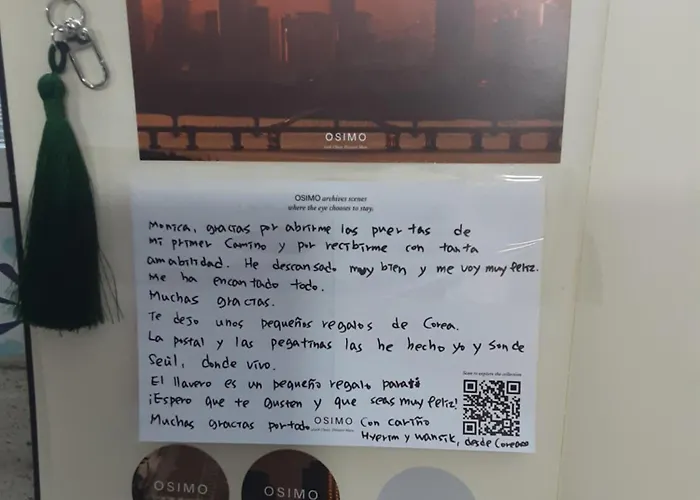 OSIMO
OSIMO archives scenes
where the eye chooses to stay.
Monica, gracias por abrirme las puertas de
mi primer Camino y por recibirme con tanta
amabilidad. He descansado muy bien y me voy muy feliz.
Me ha encantado todo.
Muchas gracias.
Te dejo unos pequeños regalos de Corea.
La postal y las pegatinas las he hecho yo y son de
Seúl, donde vivo.
El llavero es un pequeño regalo para ti
¡Espero que te gusten y que seas muy feliz!
Muchas gracias por todo
OSIMO
Con cariño
Hyerim y Wansik, desde Corea
Scan to explore the collection
OSIMO
OSIMO